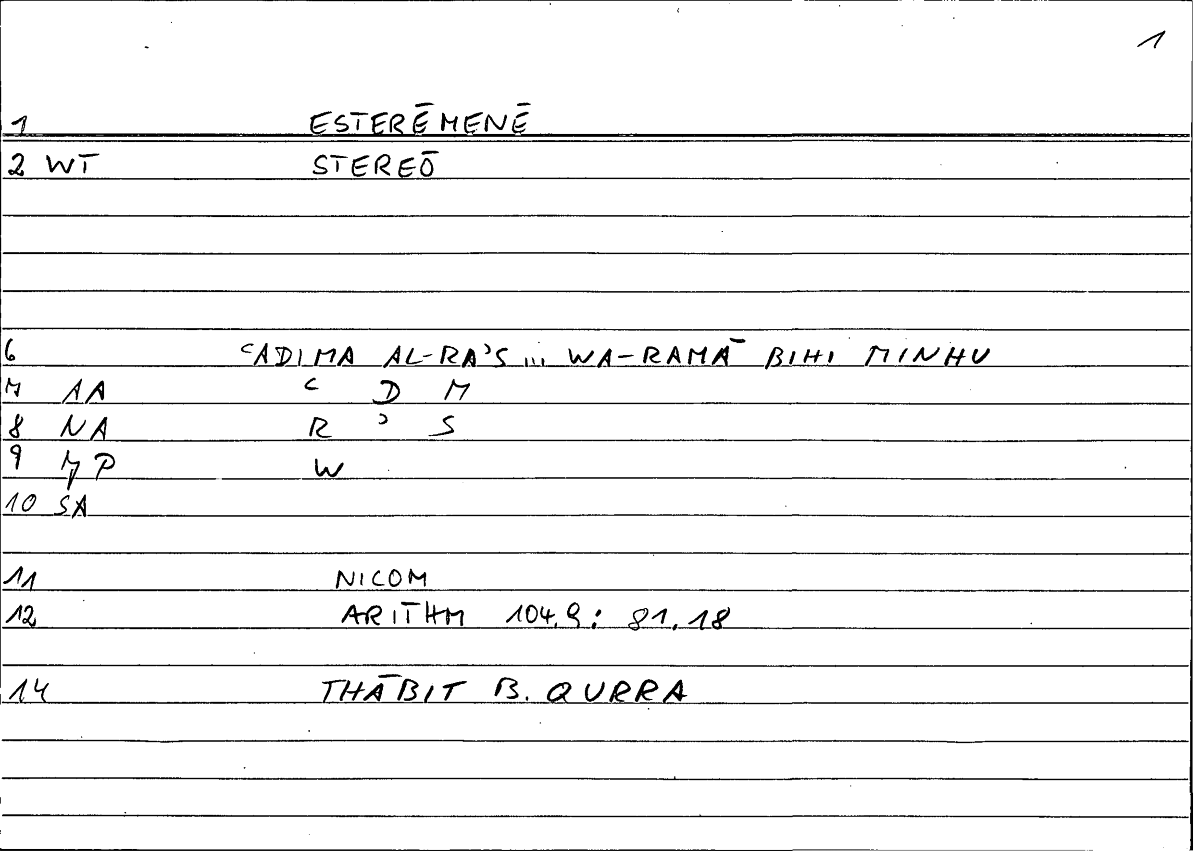 1
1 ESTERĒMENĒ
2 WT STEREŌ
6 ʿADIMA AL-RAʾS ... WA-RAMĀ BIHI MINHU
7 AA ʿ D M
8 NA R ʾ S
9 MP W
10 SA
11 NICOM
12 ARITHM 104.9: 81.18
14 THĀBIT B. QURRA